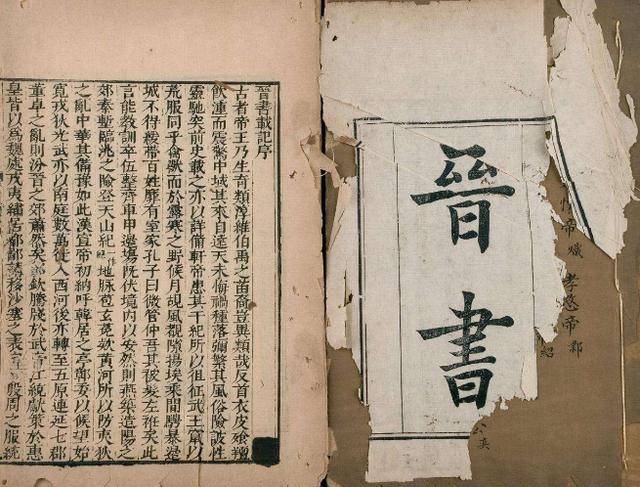 懷帝熾 孝愍帝鄴
晉書
晉書載記序
古者帝王乃生奇類淳維伯禹之苗裔豈異類哉反首衣皮飡羶
飲湩而震驚中域其來自遠天未悔禍種落彌繁其風俗險詖性
靈馳突前史載之亦以詳備軒帝患其干紀所以徂征武王竄以
荒服同乎禽獸而於露寒之野候月覘風覩隙揚埃乘間騁暴邊
城不得緩帶百姓靡有室家孔子曰微管仲吾其被髮左衽矣此
言能教訓卒伍整齊車甲邊場既伏境內以安然則燕築造陽之
郊秦塹臨洮之險登天山紀地脉苞玄菟款黃河所以防夷狄
之亂中華其備豫如此漢宣帝初納呼韓居之亭鄣委以候望始
寬戎狄光武亦以南庭數萬徙入西河後亦轉至五原連延七郡
董卓之亂則汾晉之郊蕭然矣郭欽騰牋於武帝江統獻策於惠
皇皆以爲魏處戎夷繡居都鄙請移沙塞之表定一殷周之服統